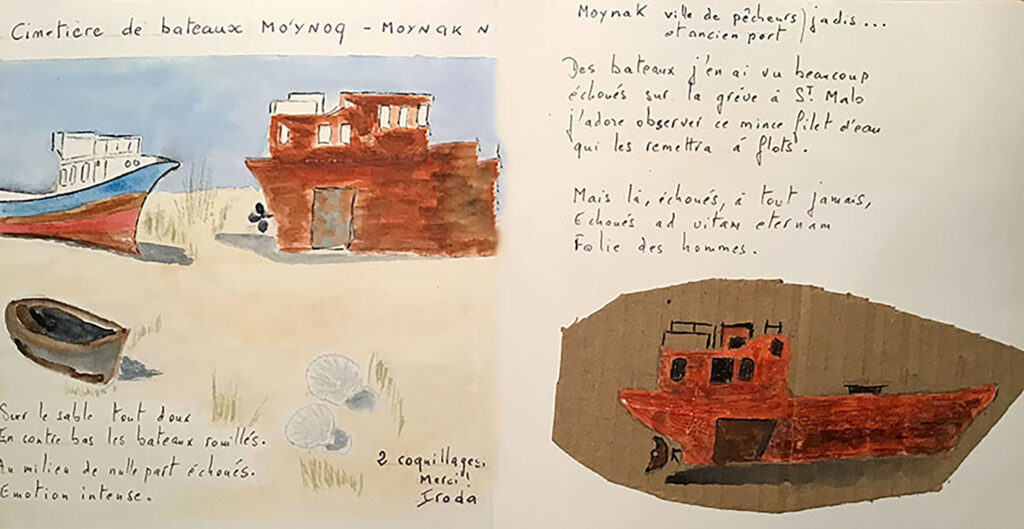 Cimetière de bateaux MO'YNOQ - MOYNAK N
Sur le sable tout doux
En contre bas les bateaux rouillés.
Au milieu de nulle part échoués.
Emotion intense.
2 coquillages.
Merci !
Iroda
Moynak ville de pêcheurs) jadis...
et ancien port
Des bateaux j'en ai vu beaucoup
échoués sur la grève à ST Malo
j'adore observer ce mince filet d'eau
qui les remettra à flots.
Mais là, échoués, à tout jamais,
Echoués ad vitam eternam
Folie des hommes.